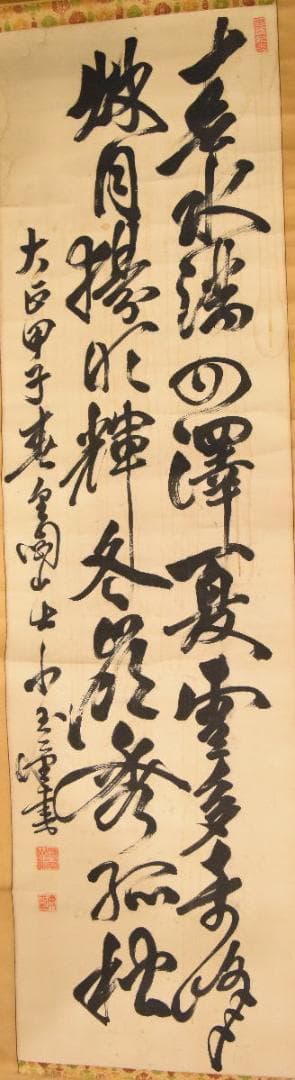 春水満四澤夏雲多奇峰
秋月揚明輝冬嶺秀孤松
大正甲子春 山 小玉 書